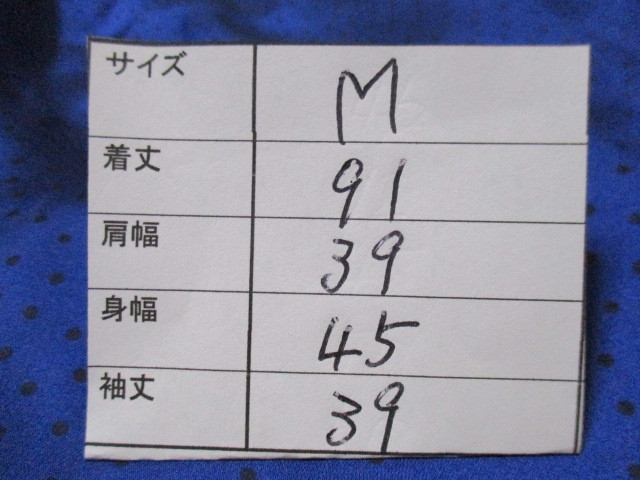 サイズ M
着丈 91
肩幅 39
身幅 45
袖丈 39